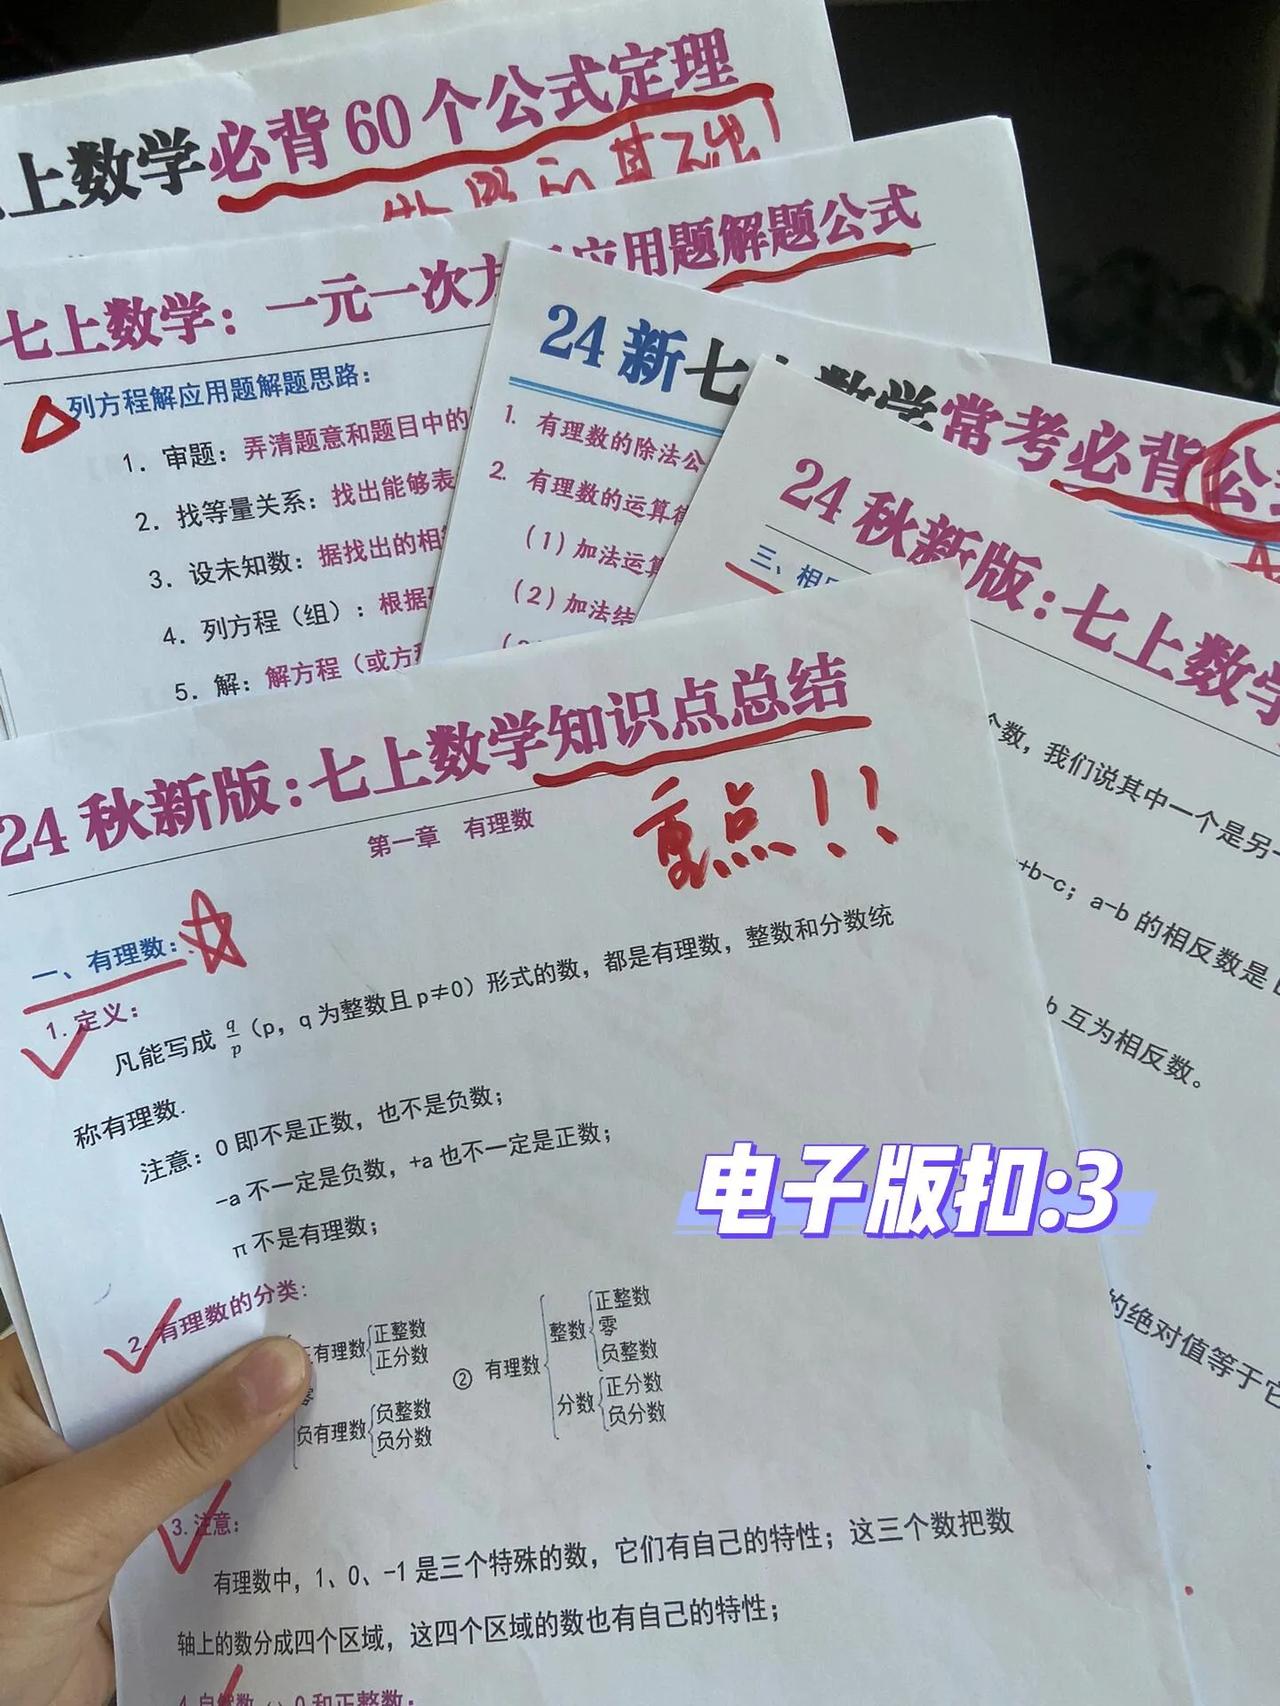 上数学必背60个公式定理
七上数学：一元一次方
应用题解题公式
列方程解应用题解题思路：
1. 审题：弄清题意和题目中的
2. 找等量关系：找出能够表
3. 设未知数：据找出的相
4. 列方程（组）：根据
5. 解：解方程（或方
24新七上数学常考必背公
1. 有理数的除法公
2. 有理数的运算律
(1)加法运算
(2)加法结
24秋新版：七上数学
三、相
个数，我们说其中一个是另一
+b-c；a-b的相反数是b
b互为相反数。
的绝对值等于它
24秋新版：七上数学知识点总结
重点！！
第一章 有理数
一、有理数：
1.定义：
凡能写成 q/p（p，q为整数且p≠0）形式的数，都是有理数，整数和分数统
称有理数.
注意：0即不是正数，也不是负数；
-a不一定是负数，+a也不一定是正数；
π不是有理数；
电子版扣:3
2.有理数的分类:
正有理数 正整数 正分数
零
负有理数 负整数 负分数
② 有理数
整数 正整数 零 负整数
分数 正分数 负分数
3.注意：
有理数中，1、0、-1是三个特殊的数，它们有自己的特性；这三个数把数
轴上的数分成四个区域，这四个区域的数也有自己的特性；
4.自然数 0和正整数；